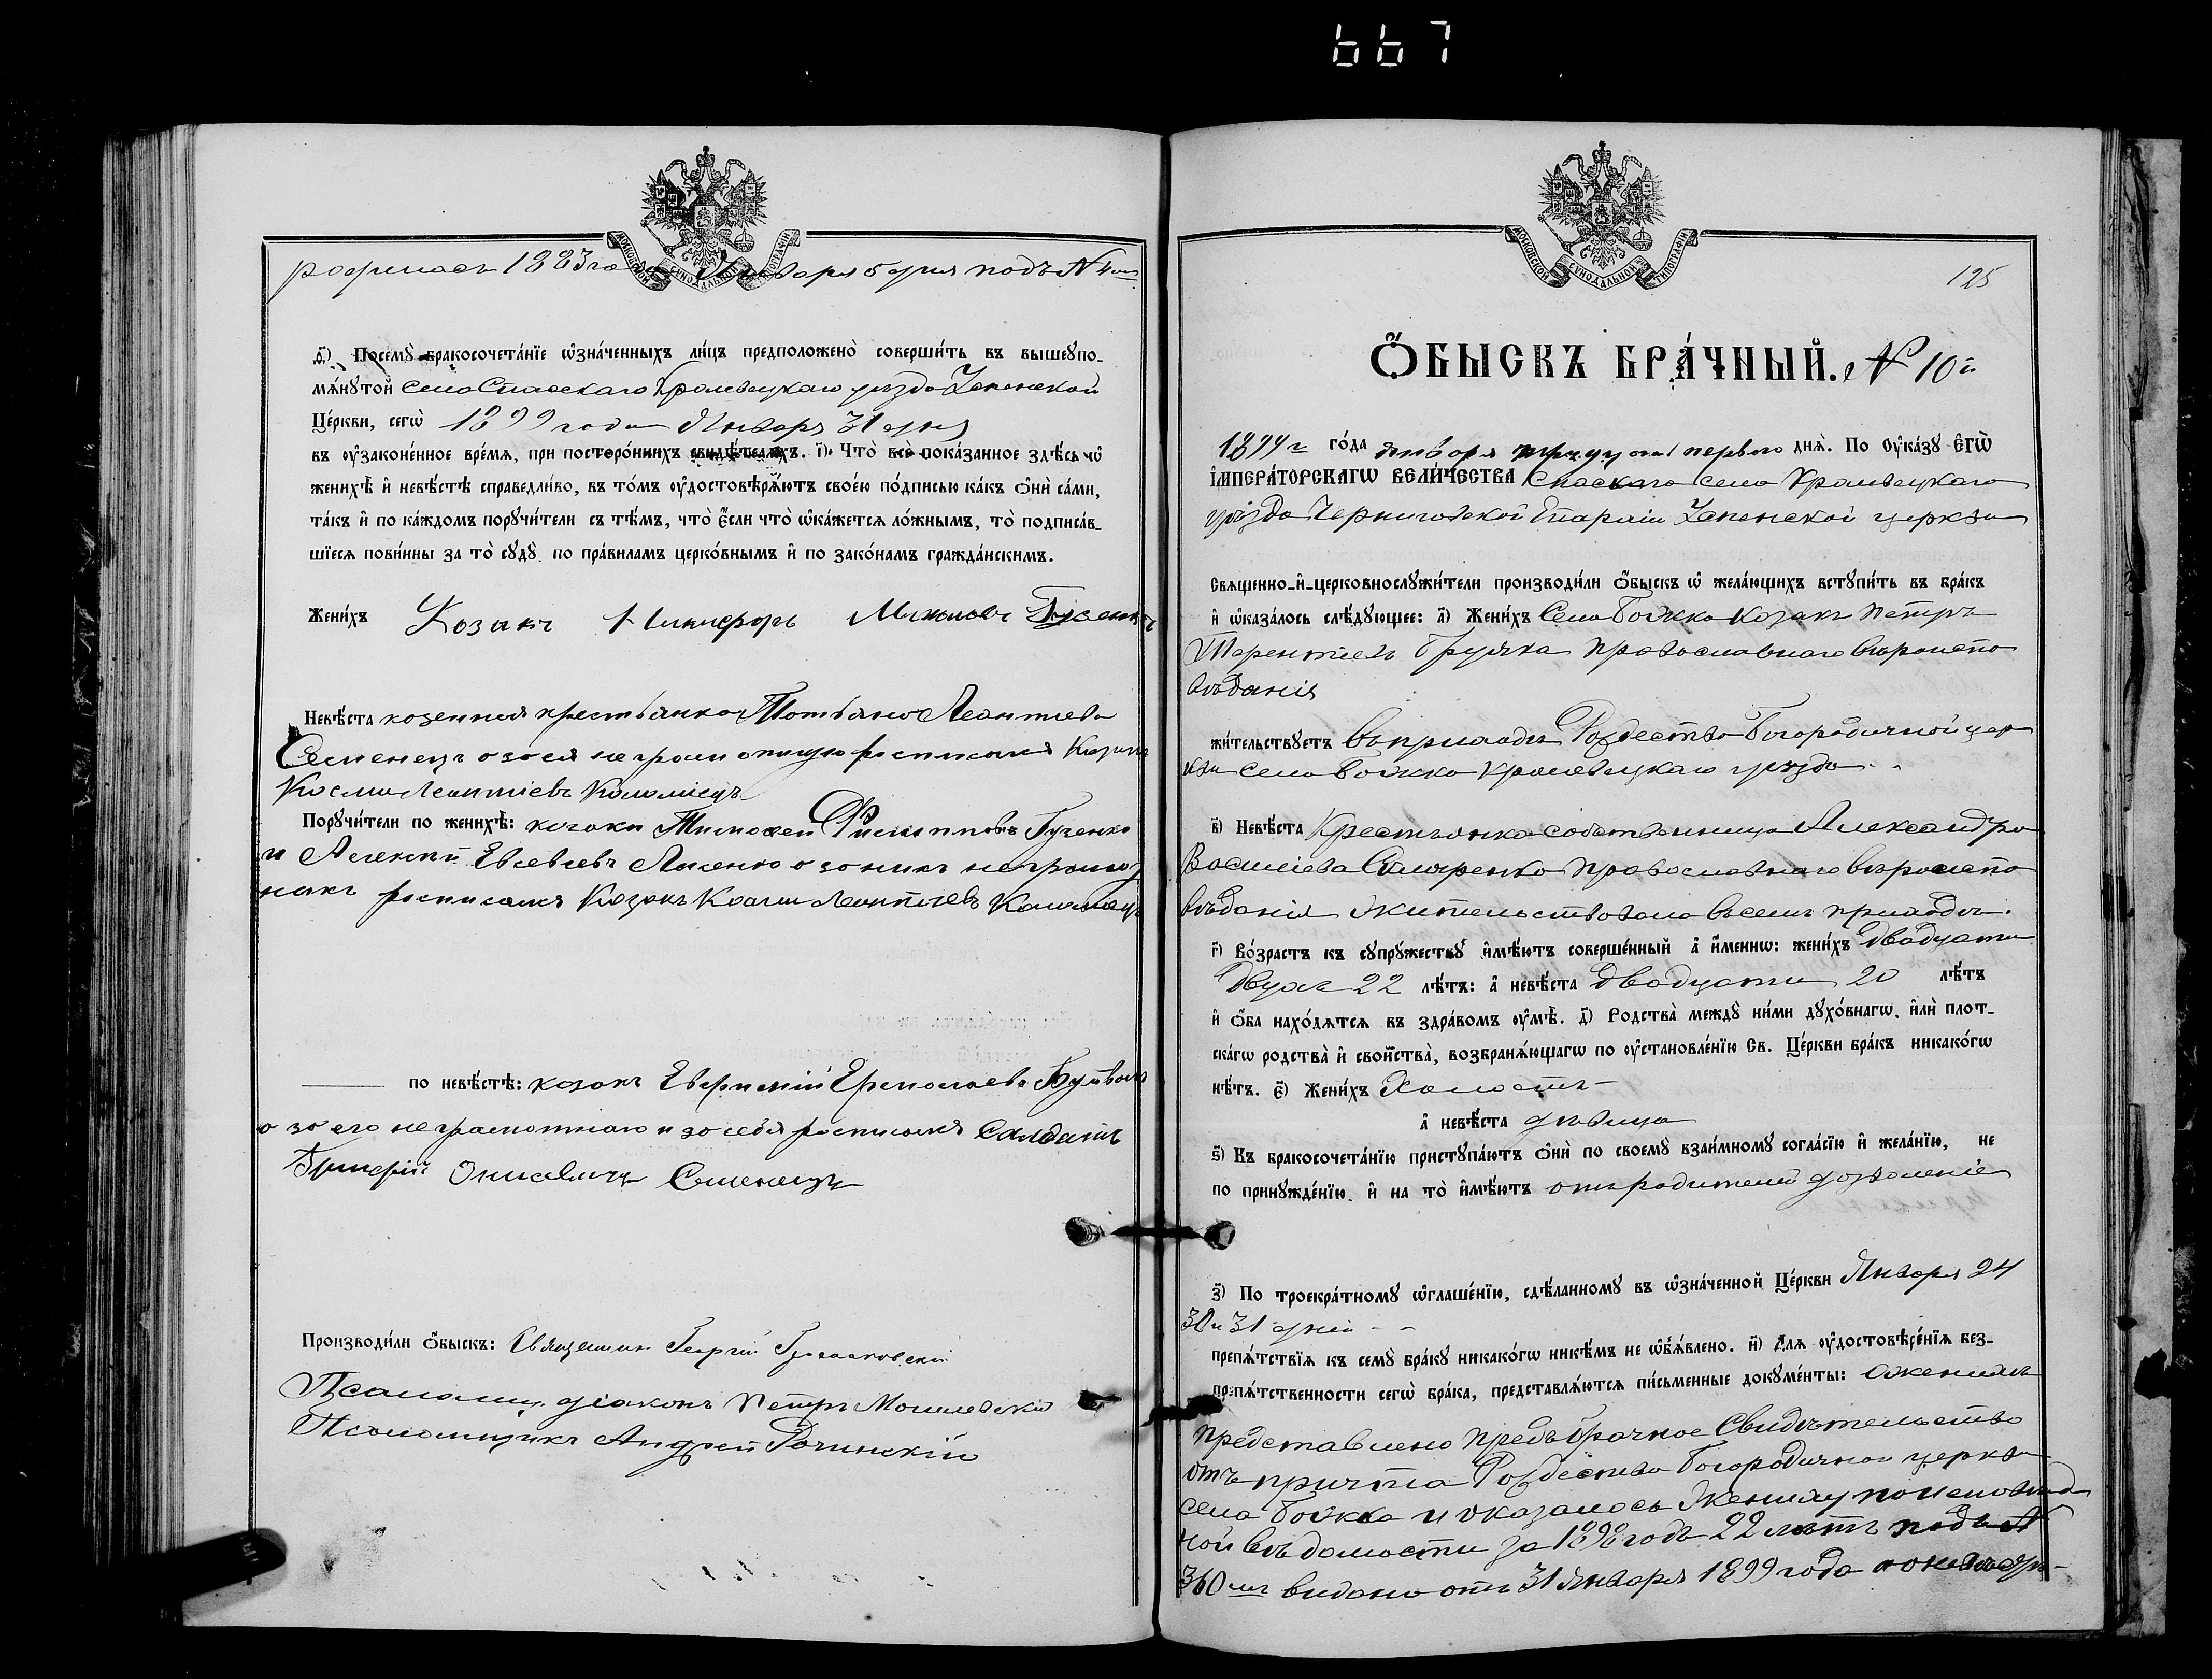 667
МОСКОВСКОЙ СѴНОДАЛЬНОЙ ТИПОГРАФІИ
родилась 1883 го Января 5 дня подъ N 4мъ
ѳ҃) Посемꙋ бракосочета́нїе ѡ҆зна́ченныхъ ли́цъ предположено̀ соверши́ть въ вышеꙋпо-
мѧ́нꙋтой села Спаскаго Кролевецкаго уезда Успенской
Це́ркви, сегѡ̀ 1899 года Января 31 дня
въ ᲂу҆законе́нное вре́мѧ, при посторо́ннихъ свидѣ́телѧхъ. і҃) Что̀ всѐ пока́занное здѣ́сь ѡ҆
женихѣ̀ и҆ невѣ́стѣ справедли́во, въ то́мъ ᲂу҆достовѣрѧ́ютъ свое́ю по́дписью ка́къ ѻ҆нѝ са́ми,
та́къ и҆ по ка́ждомъ порꙋчи́тели съ тѣ́мъ, что̀ є҆́сли что̀ ѡ҆ка́жетсѧ ло́жнымъ, то̀ подписа́в-
шїесѧ пови́нны за то̀ сꙋдꙋ̀ по пра́виламъ церко́внымъ и҆ по зако́намъ гражда́нскимъ.
Жени́хъ Козакъ Никифоръ Гузенко
Невѣ́ста козенная крестьянка Татьяна Леонтиева
Семенецъ а за ея неграмотную росписался Козакъ
Косма Леонтіевъ Коломіецъ
Порꙋчи́тели по женихѣ̀: козаки Тимофей Филипповъ Гузенко
и Алексій Евсевіевъ Лисенко а за нихъ неграмот
ныхъ росписался Козакъ Косма Леонтіевъ Коломіецъ
по невѣ́стѣ: козакъ Евфимій Ермолаевъ
а за его неграмотнаго и за себя росписался Солдатъ
Григорій Онисевичъ Семенецъ
Производи́ли ѻ҆́быскъ: Священникъ Георгій
Псаломщ. діаконъ Петръ Могилевскій
Псаломщикъ Андрей Рочинскій
МОСКОВСКОЙ СѴНОДАЛЬНОЙ ТИПОГРАФІИ
125
Ѻ҆́БЫСКЪ БРА́ЧНЫЙ. N 10й
1899 г го́да января тридцать первого днѧ̀. По ᲂу҆ка́зꙋ є҆гѡ̀
і҆мпера́торскагѡ вели́чества Спаскаго села Кролевецкаго
уѣзда Черниговской Епархіи Успенской церкви
Свѧще́нно-и҆-церковнослꙋжи́тели производи́ли ѻ҆́быскъ ѡ҆ жела́ющихъ встꙋпи́ть въ бра́къ
и҆ ѡ҆каза́лось слѣ́дꙋющее: а҃) Жени́хъ Села Божка Козакъ Петръ
Терентіевъ Грузка православнаго вѣроиспо
вѣданія
жи́тельствꙋетъ въ приходѣ Рождество Богородичной цер
кви села Божка Кролевецкаго уѣзда
в҃) Невѣ́ста Крестьянка собственница Александра
Василіева православнаго вѣроиспо
вѣданія жительствовала въ семъ приходѣ.
г҃) Во́зрастъ къ сꙋпрꙋжествꙋ̀ и҆мѣ́ютъ соверше́нный а҆ и҆́меннѡ: жени́хъ двадцати
двухъ 22 лѣ́тъ: а҆ невѣ́ста двадцати 20 лѣ́тъ
и҆ ѻ҆́ба нахо́дѧтсѧ въ здра́вомъ ᲂу҆мѣ̀. д҃) Родства̀ междꙋ̀ ни́ми дꙋхо́внагѡ, и҆лѝ плот-
ска́гѡ родства̀ и҆ сво́йства, возбранѧ́ющагѡ по ᲂу҆становле́нїю Св. Це́ркви бра́къ никако́гѡ
нѣ́тъ. є҃) Жени́хъ Холостъ
а҆ невѣ́ста дѣвица
ѕ҃) Къ бракосочета́нїю пристꙋпа́ютъ ѻ҆нѝ по своемꙋ̀ взаи́мномꙋ согла́сїю и҆ жела́нїю, не
по принꙋжде́нїю и҆ на то̀ и҆мѣ́ютъ отъ родителей дозволеніе
з҃) По троекра́тномꙋ ѡ҆глаше́нїю, сдѣ́ланномꙋ въ ѡ҆зна́ченной Це́ркви Января 24
30 и 31 дней
препѧ́тствїѧ къ семꙋ̀ бра́кꙋ никако́гѡ никѣ́мъ не ѡ҆б̾ѧ́влено. и҃) Длѧ ᲂу҆достовѣре́нїѧ без-
препѧ́тственности сегѡ̀ бра́ка, представлѧ́ютсѧ пи́сьменные докꙋме́нты: Женихъ
представлено предъбрачное Свидѣтельство
отъ причта Рождество Богородичной церкви
села Божка и оказалось жениху по исповѣд
ной вѣдомости за 1898 годъ 22 лѣтъ подъ N
360мъ видано отъ 31 Января 1899 года